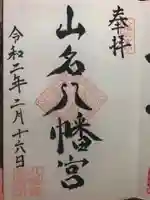 奉拝
山名八幡宮
令和二年二月十六日